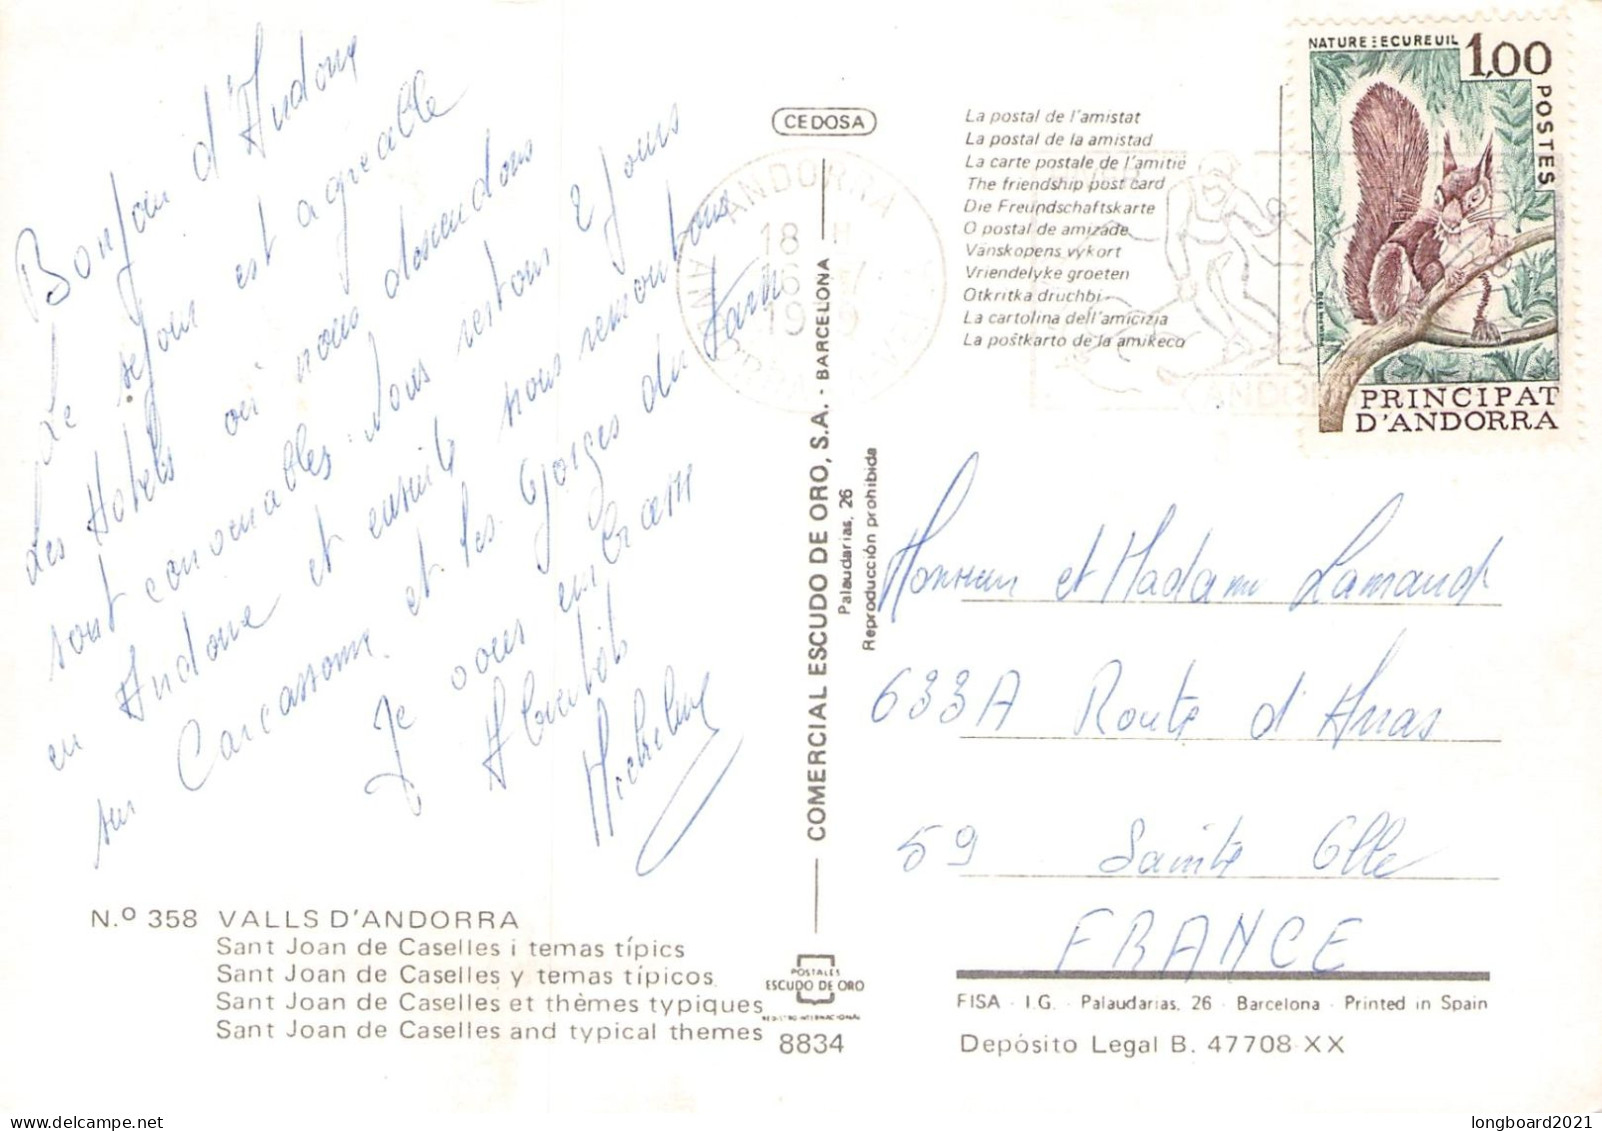 Bonjour d'Andorre
Le séjour est agréable
Les Hotels où nous descendons
sont convenables. Nous restons 2 jours
en Andorre et ensuite nous remontons
sur Carcassonne et les Gorges du Tarn
Je vous embrasse
Micheline
N.º 358 VALLS D'ANDORRA
Sant Joan de Caselles i temas típics
Sant Joan de Caselles y temas típicos
Sant Joan de Caselles et thèmes typiques
Sant Joan de Caselles and typical themes
CEDOSA
COMERCIAL ESCUDO DE ORO, S.A. - BARCELONA
Palaudarias, 26
Reproducción prohibida
POSTALES
ESCUDO DE ORO
REGISTRO INTERNACIONAL
8834
La postal de l'amistat
La postal de la amistad
La carte postale de l'amitié
The friendship post card
Die Freundschaftskarte
O postal de amizade
Vanskopens vykort
Vriendelyke groeten
Otkritka druchbi
La cartolina dell'amicizia
La poŝtkarto de la amikeco
ANDORRA
18 H
19
NATURE: ECUREUIL
1,00
POSTES
PRINCIPAT
D'ANDORRA
Monsieur et Madame Lamand
633A Route d'Arras
59 Sainte Olle
FRANCE
FISA - I.G. - Palaudarias, 26 - Barcelona - Printed in Spain
Depósito Legal B. 47708-XX
longboard2021